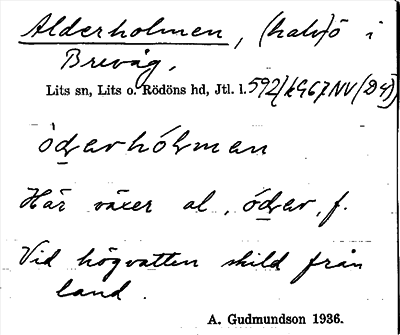 Alderholmen, (halv)ö i
Brevåg,
Lits sn, Lits o. Rödöns hd, Jtl. l. 592/kG67NV(D4)
óderhólmen
Här växer al, óder, f.
Vid högvatten skild från
land.
A. Gudmundson 1936.